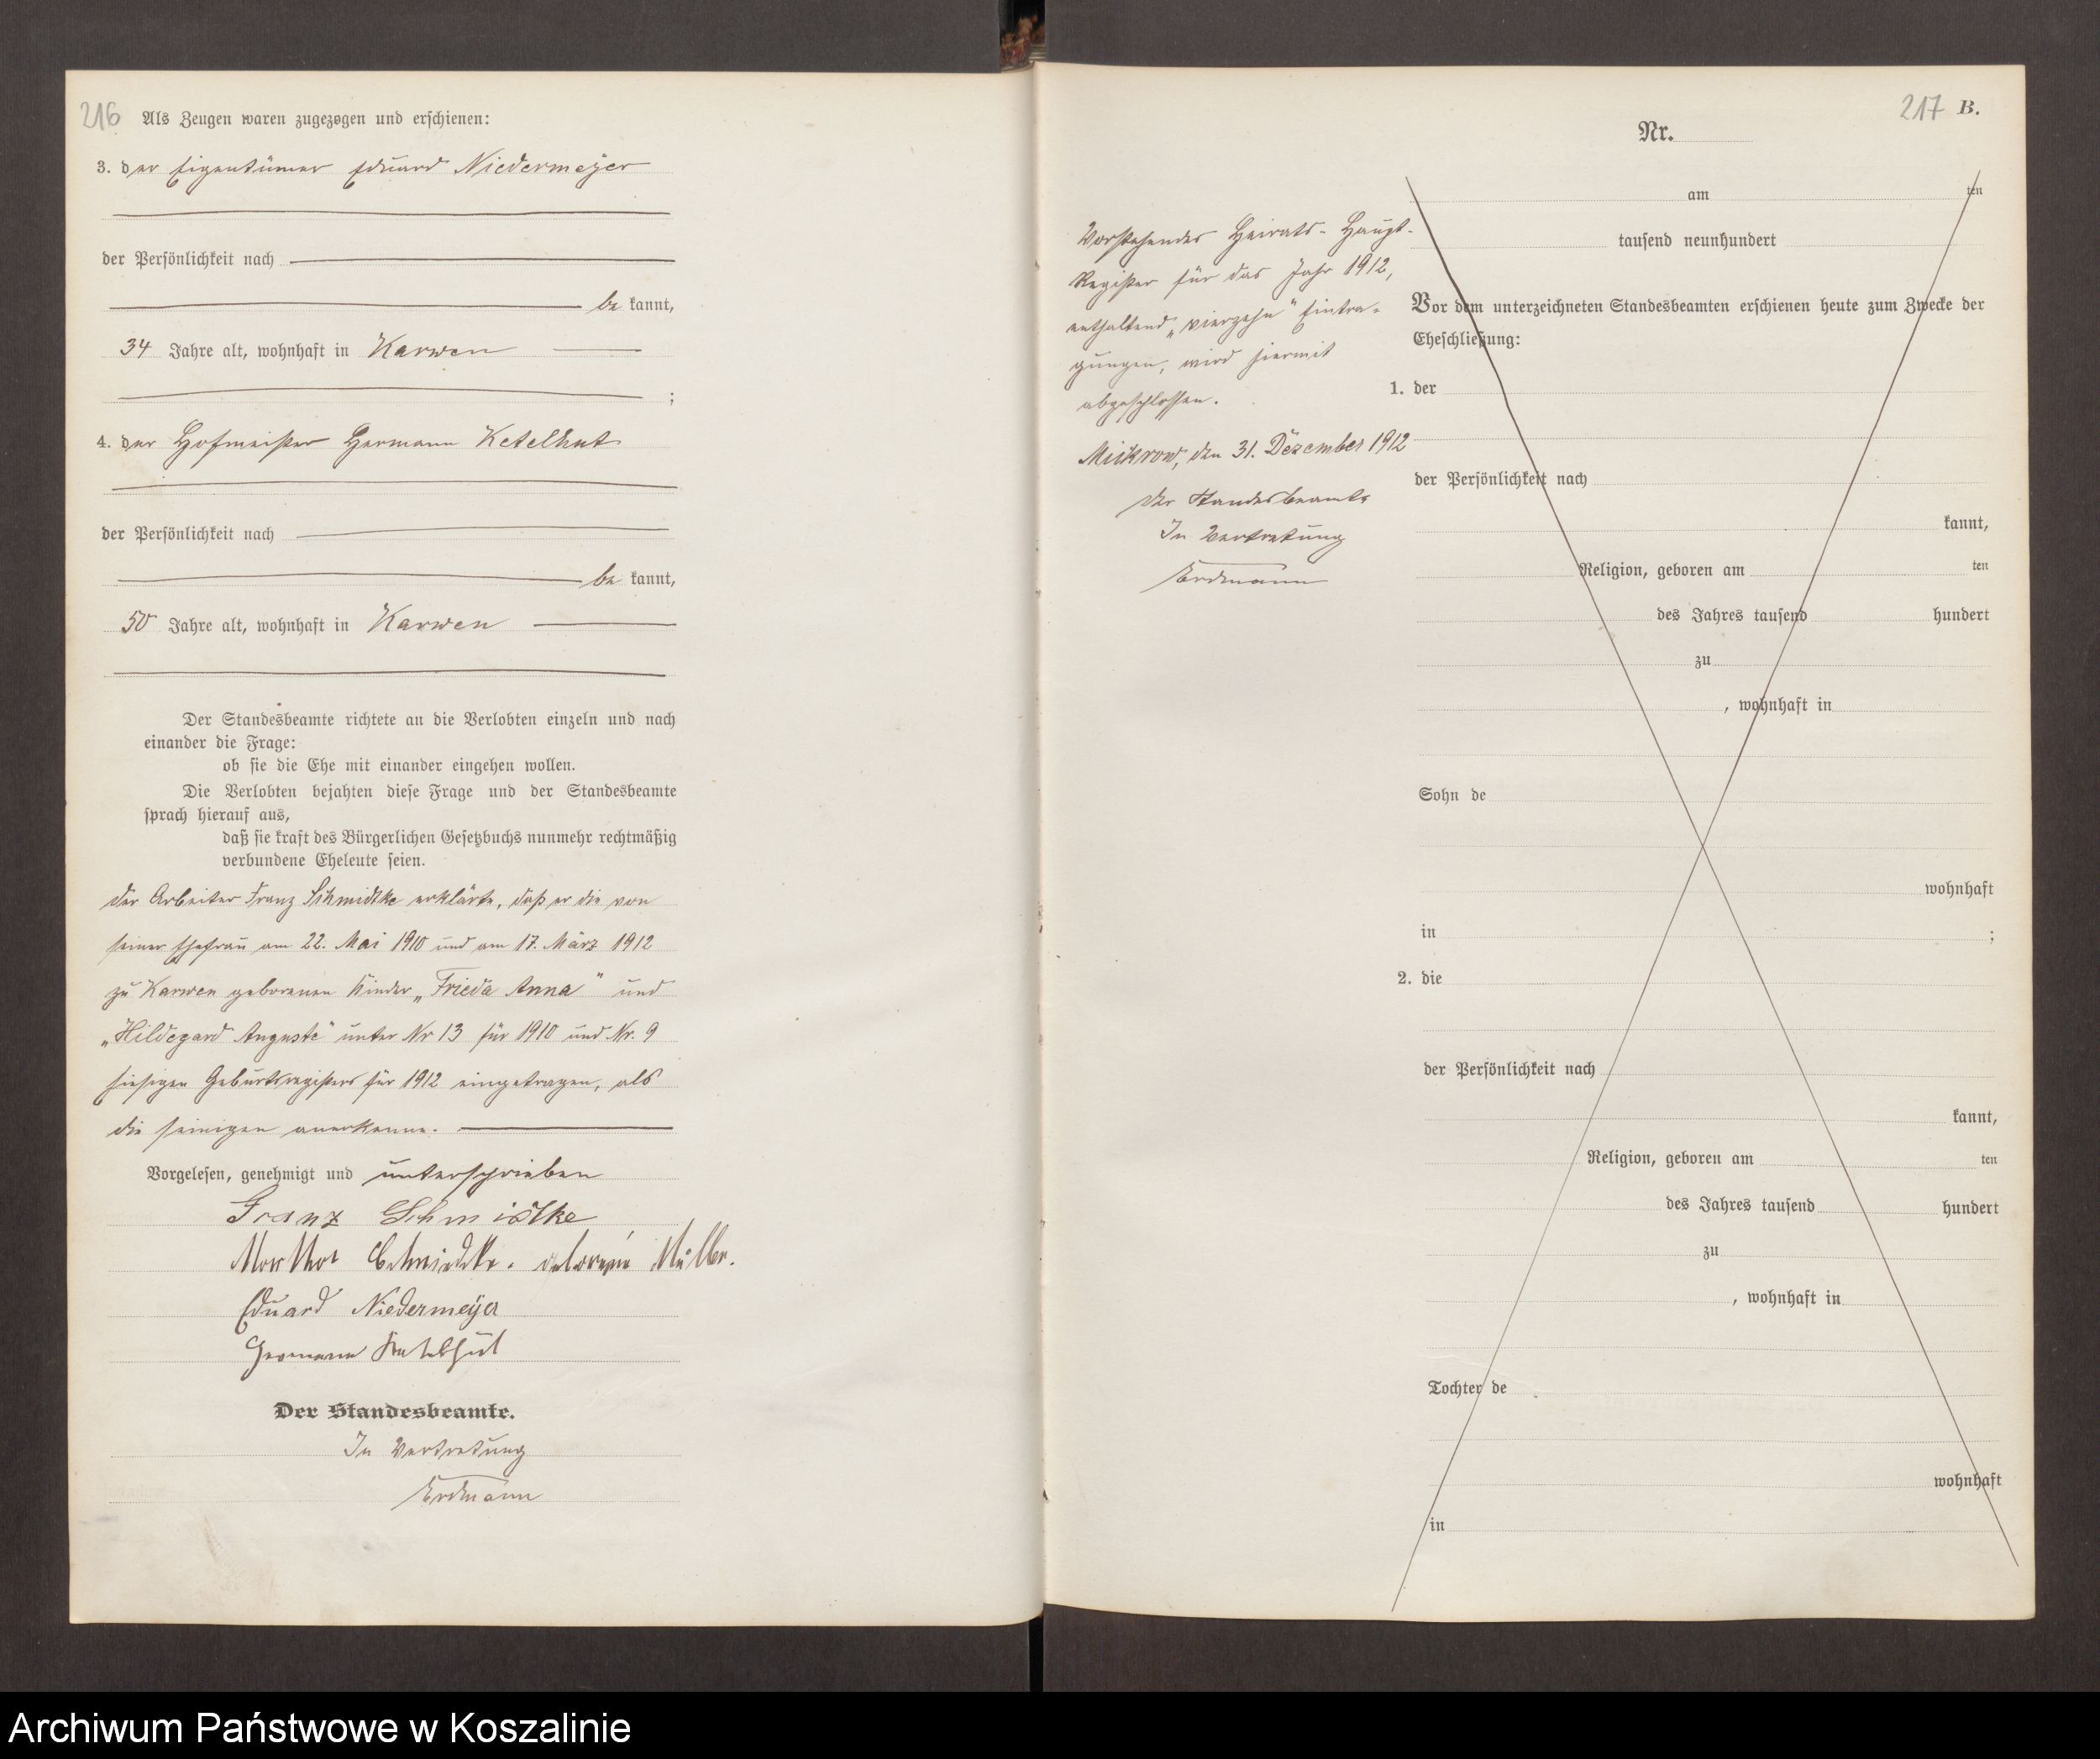 216 Als Zeugen waren zugezogen und erschienen:
3. der Eigentümer Eduard Niedermeyer
der Persönlichkeit nach
be kannt,
34 Jahre alt, wohnhaft in Karwen
;
4. der Hofmeister Hermann Ketelhut
der Persönlichkeit nach
be kannt,
50 Jahre alt, wohnhaft in Karwen
Der Standesbeamte richtete an die Verlobten einzeln und nach
einander die Frage:
ob sie die Ehe mit einander eingehen wollen.
Die Verlobten bejahten diese Frage und der Standesbeamte
sprach hierauf aus,
daß sie kraft des Bürgerlichen Gesetzbuchs nunmehr rechtmäßig
verbundene Eheleute seien.
Der Arbeiter Franz Schmidtke erklärte, daß er die von
seiner Ehefrau am 22. Mai 1910 und am 17. März 1912
zu Karwen geborenen Kinder „Frieda Anna" und
„Hildegard Auguste" unter Nr 13 für 1910 und Nr. 9
hiesigen Geburtsregisters für 1912 eingetragen, als
die seinigen anerkenne.
Vorgelesen, genehmigt und unterschrieben
Franz Schmidtke
Marthar Schmidtke. geborene Müller.
Eduard Niedermeyer
Hermann Ketelhut
Der Standesbeamte.
In Vertretung
Erdmann
217 B.
Nr.
am ten
tausend neunhundert
Vorstehendes Heirats-Haupt-
Register für das Jahr 1912,
enthaltend „vierzehn" Eintra-
gungen, wird hiermit
abgeschlossen.
Mickrow, den 31. Dezember 1912
Der Standesbeamte
In Vertretung
Erdmann
Vor dem unterzeichneten Standesbeamten erschienen heute zum Zwecke der
Eheschließung:
1. der
der Persönlichkeit nach
kannt,
Religion, geboren am ten
des Jahres tausend hundert
zu
, wohnhaft in
Sohn de
wohnhaft
in ;
2. die
der Persönlichkeit nach
kannt,
Religion, geboren am ten
des Jahres tausend hundert
zu
, wohnhaft in
Tochter de
wohnhaft
in
Archiwum Państwowe w Koszalinie